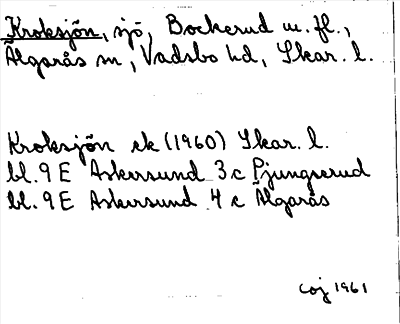 Kroksjön, sjö, Bockerud m. fl.,
Älgarås sn, Vadsbo hd, Skar. l.
Kroksjön ek (1960) Skar. l.
bl. 9 E Askersund 3 c Pjungserud
bl. 9 E Askersund 4 c Älgarås
coj 1961